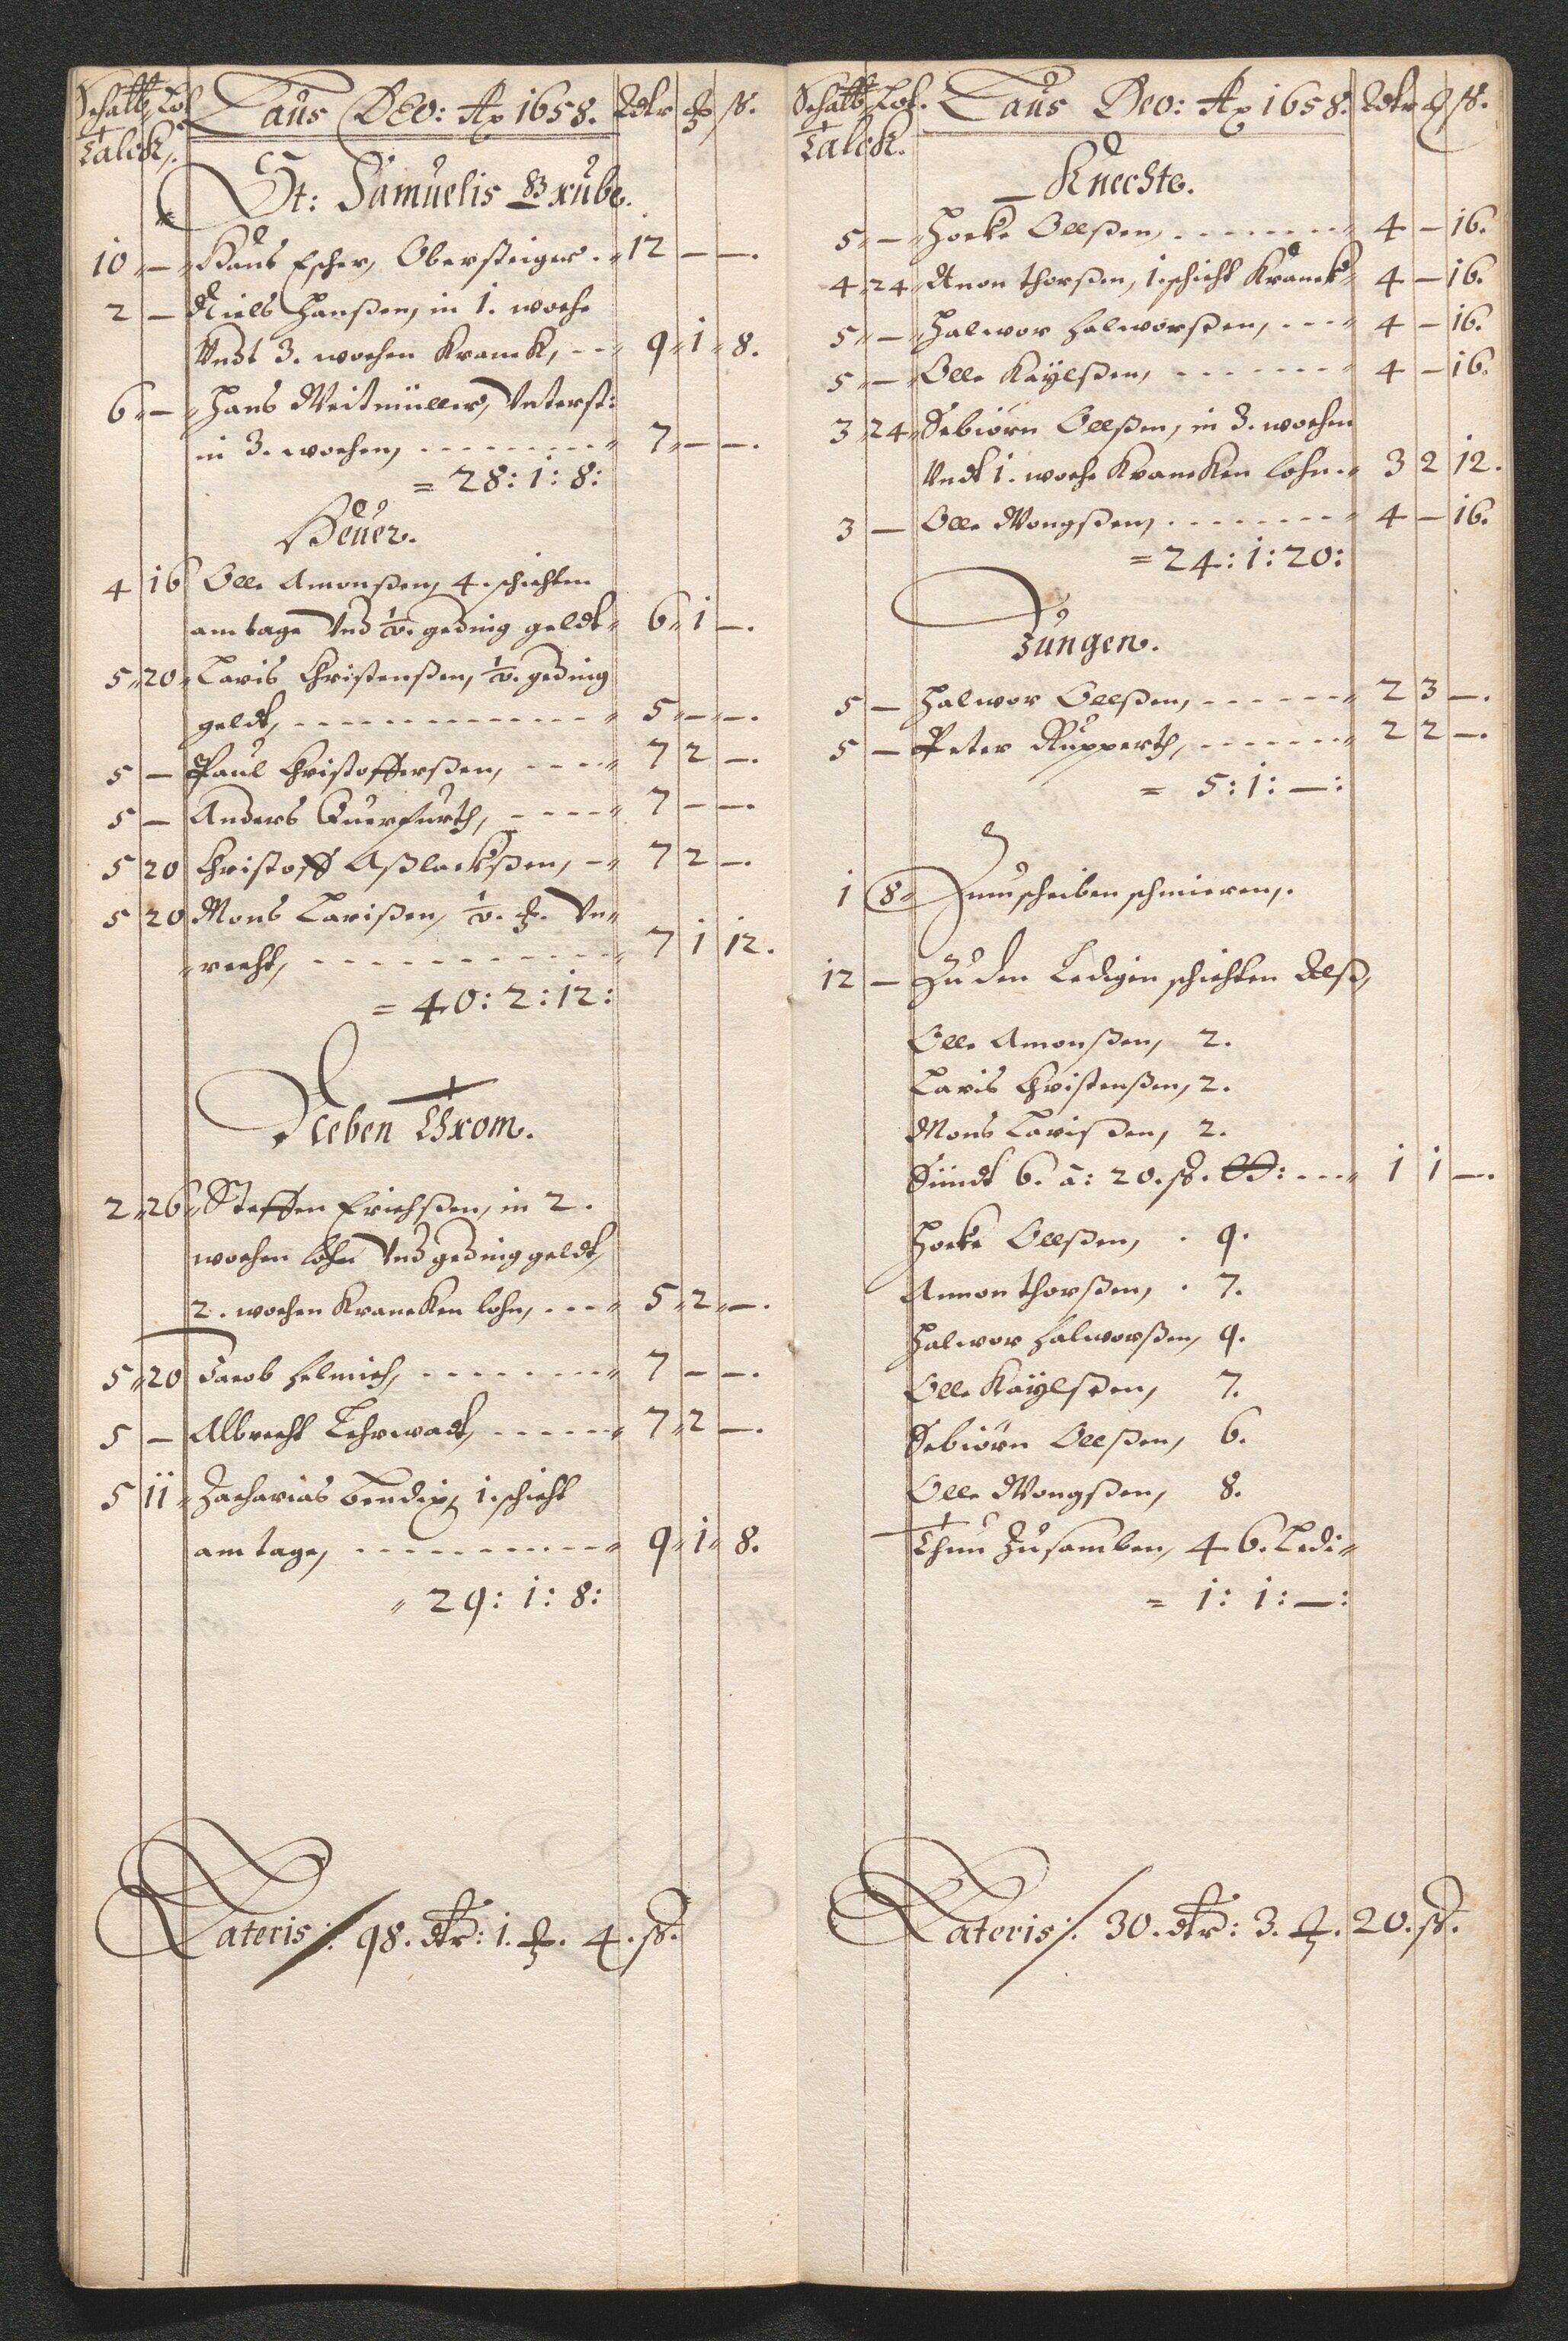 Schatt Lot
Talch.
Laus DEO: Ao 1658. Rdlr ß.
St: Samuelis Grube.
10 — Hans Escher, Obersteiger. 12 — —.
2 — Niels Hanßen, in 1. woche
Undt 3. wochen Kranck, 9 1 8.
6 — Hans Weitmüller, Unterst:
in 3. wochen, 7 — —.
= 28: 1: 8:
Heüer.
4 16 Olle Amonßen, 4. schichten
am tage Und geding geldt 6 1 —.
5 20 Laris Christenßen, geding
geldt, 5 — —.
5 — Paul Christofferßen, 7 2 —.
5 — Anders Querfurth, 7 — —.
5 20 Christoff Aßlackßen, 7 2 —.
5 20 Mons Larißen, Un-
recht, 7 1 12.
= 40: 2: 12:
Neben Throm.
2 26 Steffen Erichßen, in 2.
wochen lohn Und geding geldt,
2. wochen Krancken lohn, 5 2 —.
5 20 Jacob Helmich, 7 — —.
5 — Albrecht Lehrwadt, 7 2 —.
5 11 Zacharias Bendix, 1. schicht
am tage, 9 1 8.
29: 1: 8:
Lateris: 98. dlr: 1. 4. ß.
Schatt Lot.
Talch.
Laus Deo: Ao 1658. Rdlr ß.
Knechte.
5 — Hocke Ollßen, 4 — 16.
4 24 Amon Thorßen, 1. schicht Kranck 4 — 16.
5 — Halwor Halworßen, 4 — 16.
5 — Olle Kaÿlßen, 4 — 16.
3 24 Sebiörn Ollßen, in 3. wochen
Undt 1. woche Krancken lohn. 3 2 12.
3 — Olle Wongßen, 4 — 16.
= 24: 1: 20:
Jungen.
5 — Halwor Ollßen, 2 3 —.
5 — Peter Rupperth, 2 2 —.
= 5: 1: —:
1 8 Zum scheiben schmieren,.
12 — Zu den Ledigen schichten Alß,
Olle Amonßen, 2.
Laris Christenßen, 2.
Mons Larißen, 2.
Sündt 6. à: 20. ß. 1 1 —.
Hocke Ollßen, 9.
Amon Thorßen, 7.
Halwor Halworßen, 9.
Olle Kaÿlßen, 7.
Sebiörn Ollßen, 6.
Olle Wongßen, 8.
Thun Zusamben, 46. Ledi-
= 1: 1: —:
Lateris: 30. dlr: 3. 20. ß.